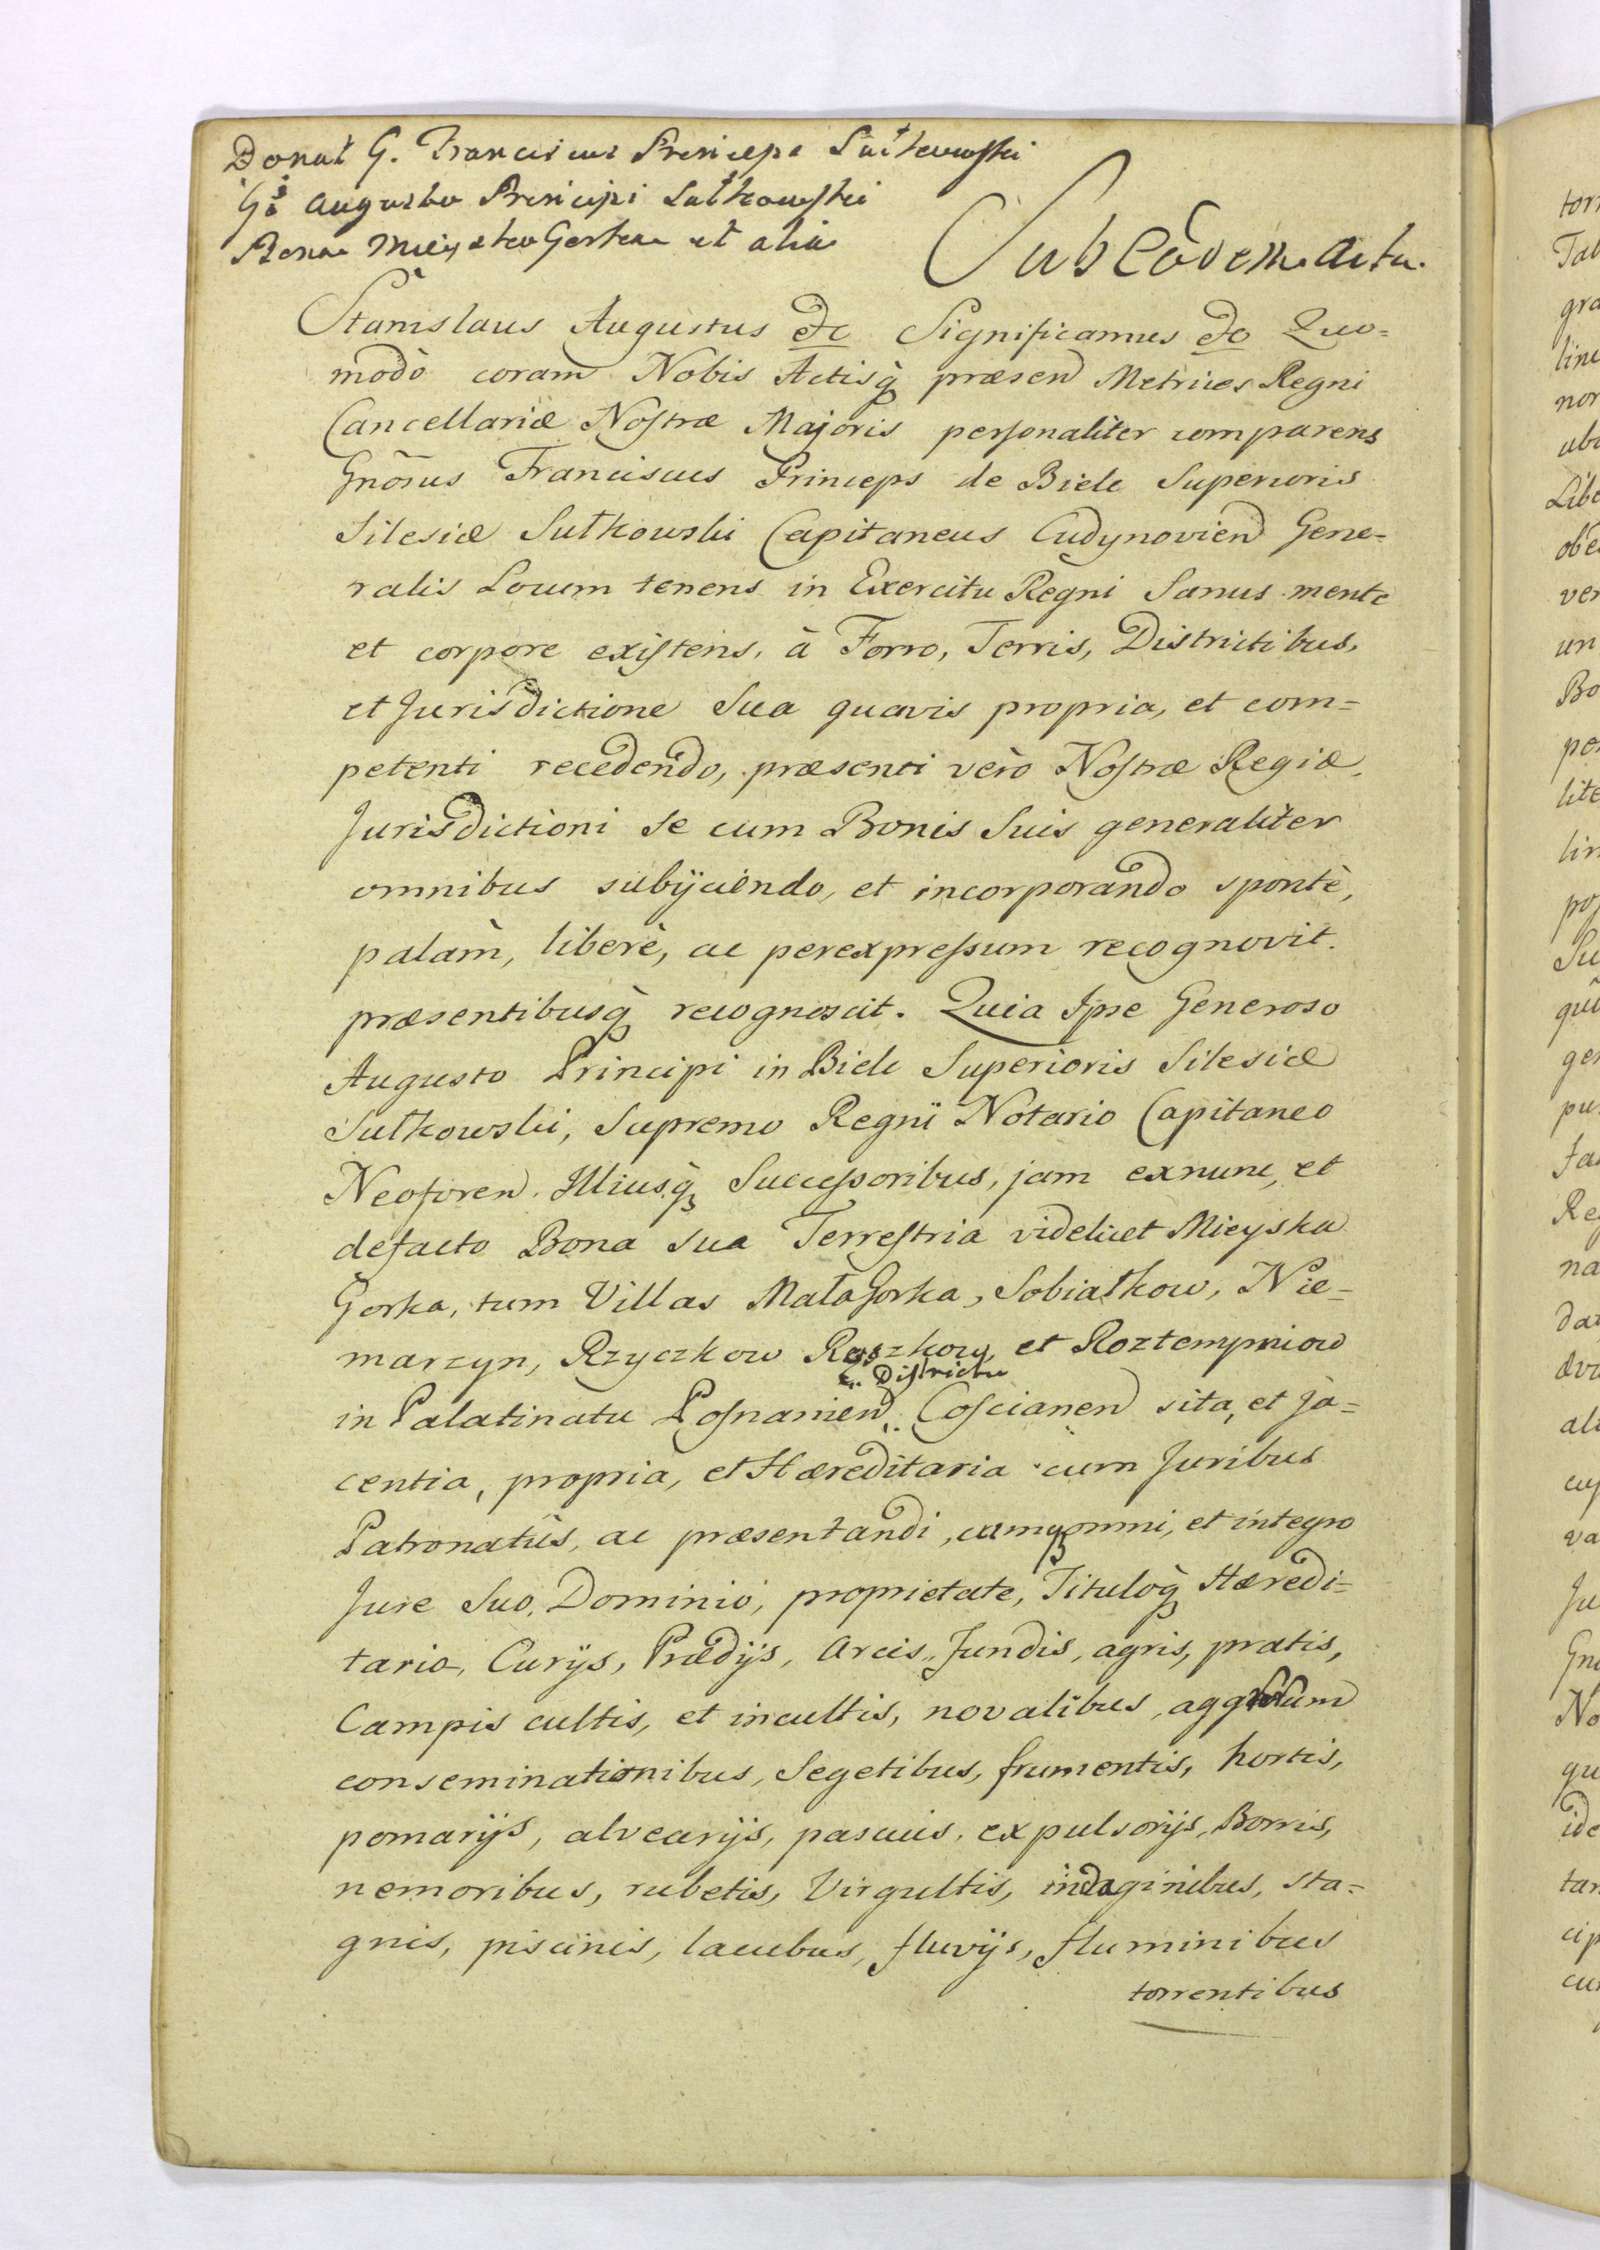 Donat G. Franciscus Princeps Sułkowski
Gso Augusto Principi Sułkowski
Bona Mieyska Gorka et alia
Sub Eodem Actu.
Stanislaus Augustus &c Significamus &c Quo=
modò coram Nobis Actisq̀ præsen Metrices Regni
Cancellariæ Nostræ Majoris personaliter comparens
Gnõsus Franciscus Princeps de Biele Superioris
Silesiæ Sułkowski Capitaneus Cudynovien Gene=
ralis Locum tenens in Exercitu Regni Sanus mente
et corpore existens, à Forro, Terris, Districtibus,
et Jurisdictione Sua quavis propria, et com=
petenti recedendo, præsenti vèro Nostræ Regiæ,
Jurisdictioni Se cum Bonis Suis generaliter
omnibus subijciendo, et incorporando spontè,
palàm, liberè, ac perexpressum recognovit.
præsentibusq̀ recognoscit. Quia Ipse Generoso
Augusto Principi in Biele Superioris Silesiæ
Sułkowski, Supremo Regni Notario Capitaneo
Neoforen. Illiusq̀ Successoribus, jam exnunc, et
defacto Bona sua Terrestria videlicet Mieyska
Gorka, tum Villas MałaGorka, Sobiałkow, Nie=
marzyn, Rzyczkow Roszkow, et Roztempniow
Districtu
in Palatinatu Posnanien, Coscianen sita, et ja=
centia, propria, et Hæreditaria cum Juribus
Patronatûs, ac præsentandi, cumq omni, et integro
Jure Suo, Dominio, proprietate, Tituloq̀ Hæredi=
tario, Curijs, Prædijs, Areis, Fundis, agris, pratis,
Campis cultis, et incultis, novalibus,
conseminationibus, Segetibus, frumentis, hortis,
pomarijs, alvearijs, pascuis, expulsorijs, Borris,
nemoribus, rubetis, Virgultis, indaginibus, sta=
gnis, piscinis, lacubus, fluvijs, fluminibus
torrentibus